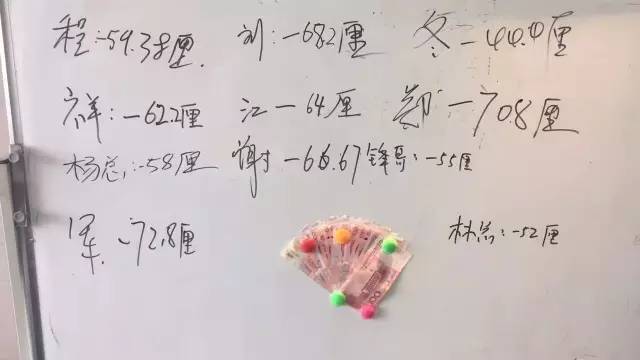 程:-59.38厘. 刘:-682厘 冬-44.4厘
祥:-62.2厘 江-64厘 郑-70.8厘
杨总:-58厘 谢-66.67 锋哥:-55厘
军.-72.8厘 林总:-52厘